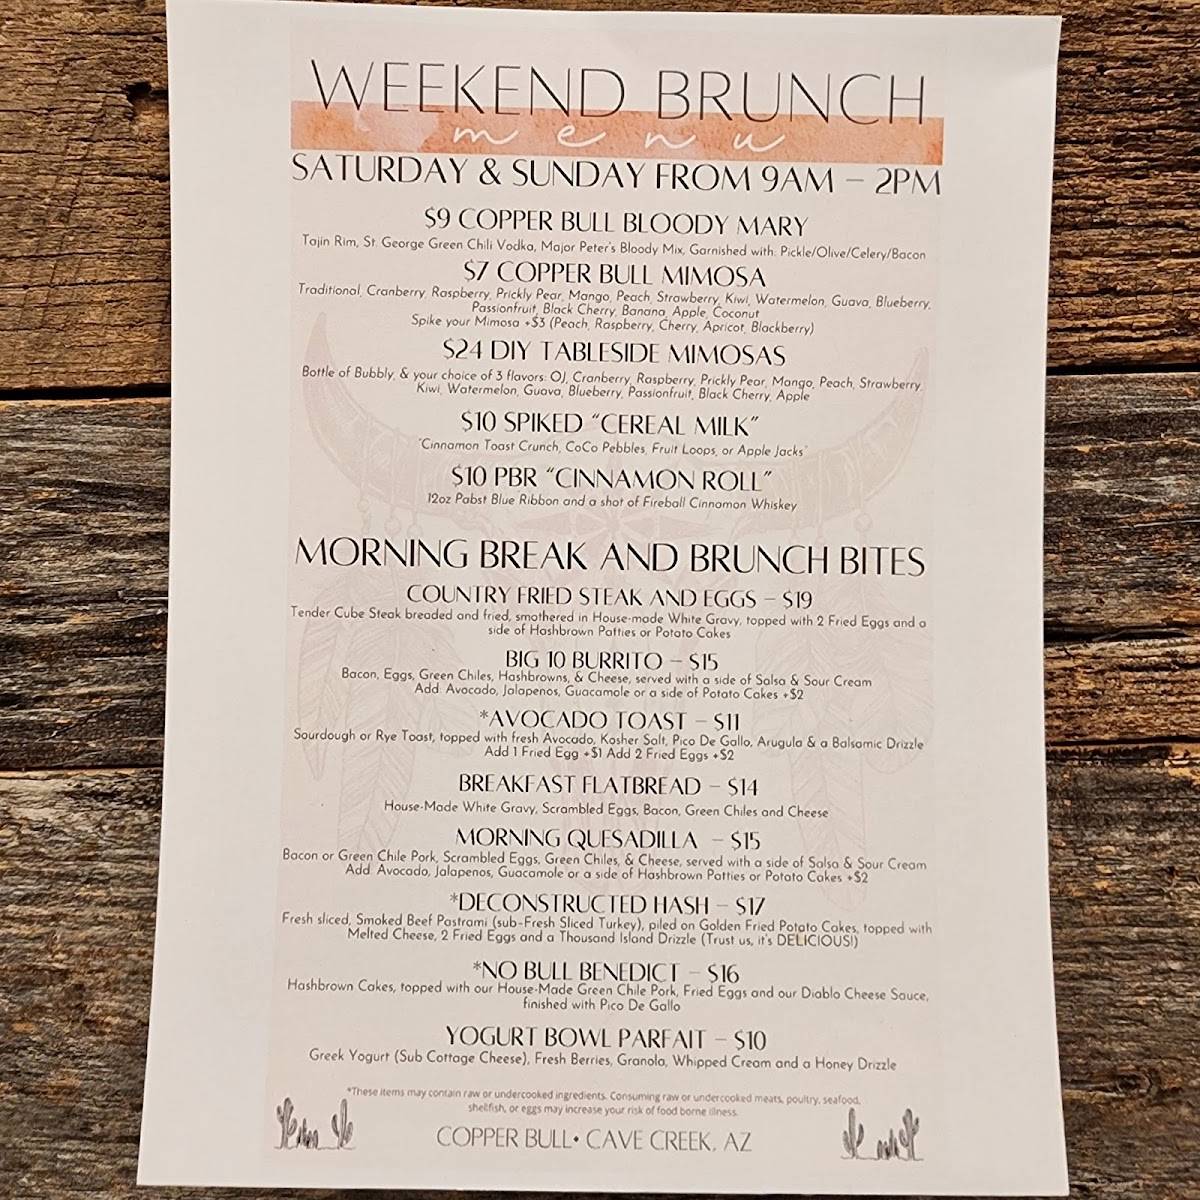 WEEKEND BRUNCH
menu
SATURDAY & SUNDAY FROM 9AM – 2PM
$9 COPPER BULL BLOODY MARY
Tajin Rim, St. George Green Chili Vodka, Major Peter's Bloody Mix, Garnished with: Pickle/Olive/Celery/Bacon
$7 COPPER BULL MIMOSA
Traditional, Cranberry, Raspberry, Prickly Pear, Mango, Peach, Strawberry, Kiwi, Watermelon, Guava, Blueberry,
Passionfruit, Black Cherry, Banana, Apple, Coconut
Spike your Mimosa +$3 (Peach, Raspberry, Cherry, Apricot, Blackberry)
$24 DIY TABLESIDE MIMOSAS
Bottle of Bubbly, & your choice of 3 flavors: OJ, Cranberry, Raspberry, Prickly Pear, Mango, Peach, Strawberry,
Kiwi, Watermelon, Guava, Blueberry, Passionfruit, Black Cherry, Apple
$10 SPIKED “CEREAL MILK”
"Cinnamon Toast Crunch, CoCo Pebbles, Fruit Loops, or Apple Jacks"
$10 PBR “CINNAMON ROLL”
12oz Pabst Blue Ribbon and a shot of Fireball Cinnamon Whiskey
MORNING BREAK AND BRUNCH BITES
COUNTRY FRIED STEAK AND EGGS – $19
Tender Cube Steak breaded and fried, smothered in House-made White Gravy, topped with 2 Fried Eggs and a
side of Hashbrown Patties or Potato Cakes
BIG 10 BURRITO – $15
Bacon, Eggs, Green Chiles, Hashbrowns, & Cheese, served with a side of Salsa & Sour Cream
Add: Avocado, Jalapenos, Guacamole or a side of Potato Cakes +$2
*AVOCADO TOAST – $11
Sourdough or Rye Toast, topped with fresh Avocado, Kosher Salt, Pico De Gallo, Arugula & a Balsamic Drizzle
Add 1 Fried Egg +$1 Add 2 Fried Eggs +$2
BREAKFAST FLATBREAD – $14
House-Made White Gravy, Scrambled Eggs, Bacon, Green Chiles and Cheese
MORNING QUESADILLA – $15
Bacon or Green Chile Pork, Scrambled Eggs, Green Chiles, & Cheese, served with a side of Salsa & Sour Cream
Add: Avocado, Jalapenos, Guacamole or a side of Hashbrown Patties or Potato Cakes +$2
*DECONSTRUCTED HASH – $17
Fresh sliced, Smoked Beef Pastrami (sub-Fresh Sliced Turkey), piled on Golden Fried Potato Cakes, topped with
Melted Cheese, 2 Fried Eggs and a Thousand Island Drizzle (Trust us, it's DELICIOUS!)
*NO BULL BENEDICT – $16
Hashbrown Cakes, topped with our House-Made Green Chile Pork, Fried Eggs and our Diablo Cheese Sauce,
finished with Pico De Gallo
YOGURT BOWL PARFAIT – $10
Greek Yogurt (Sub Cottage Cheese), Fresh Berries, Granola, Whipped Cream and a Honey Drizzle
*These items may contain raw or undercooked ingredients. Consuming raw or undercooked meats, poultry, seafood,
shellfish, or eggs may increase your risk of food borne illness.
COPPER BULL• CAVE CREEK, AZ